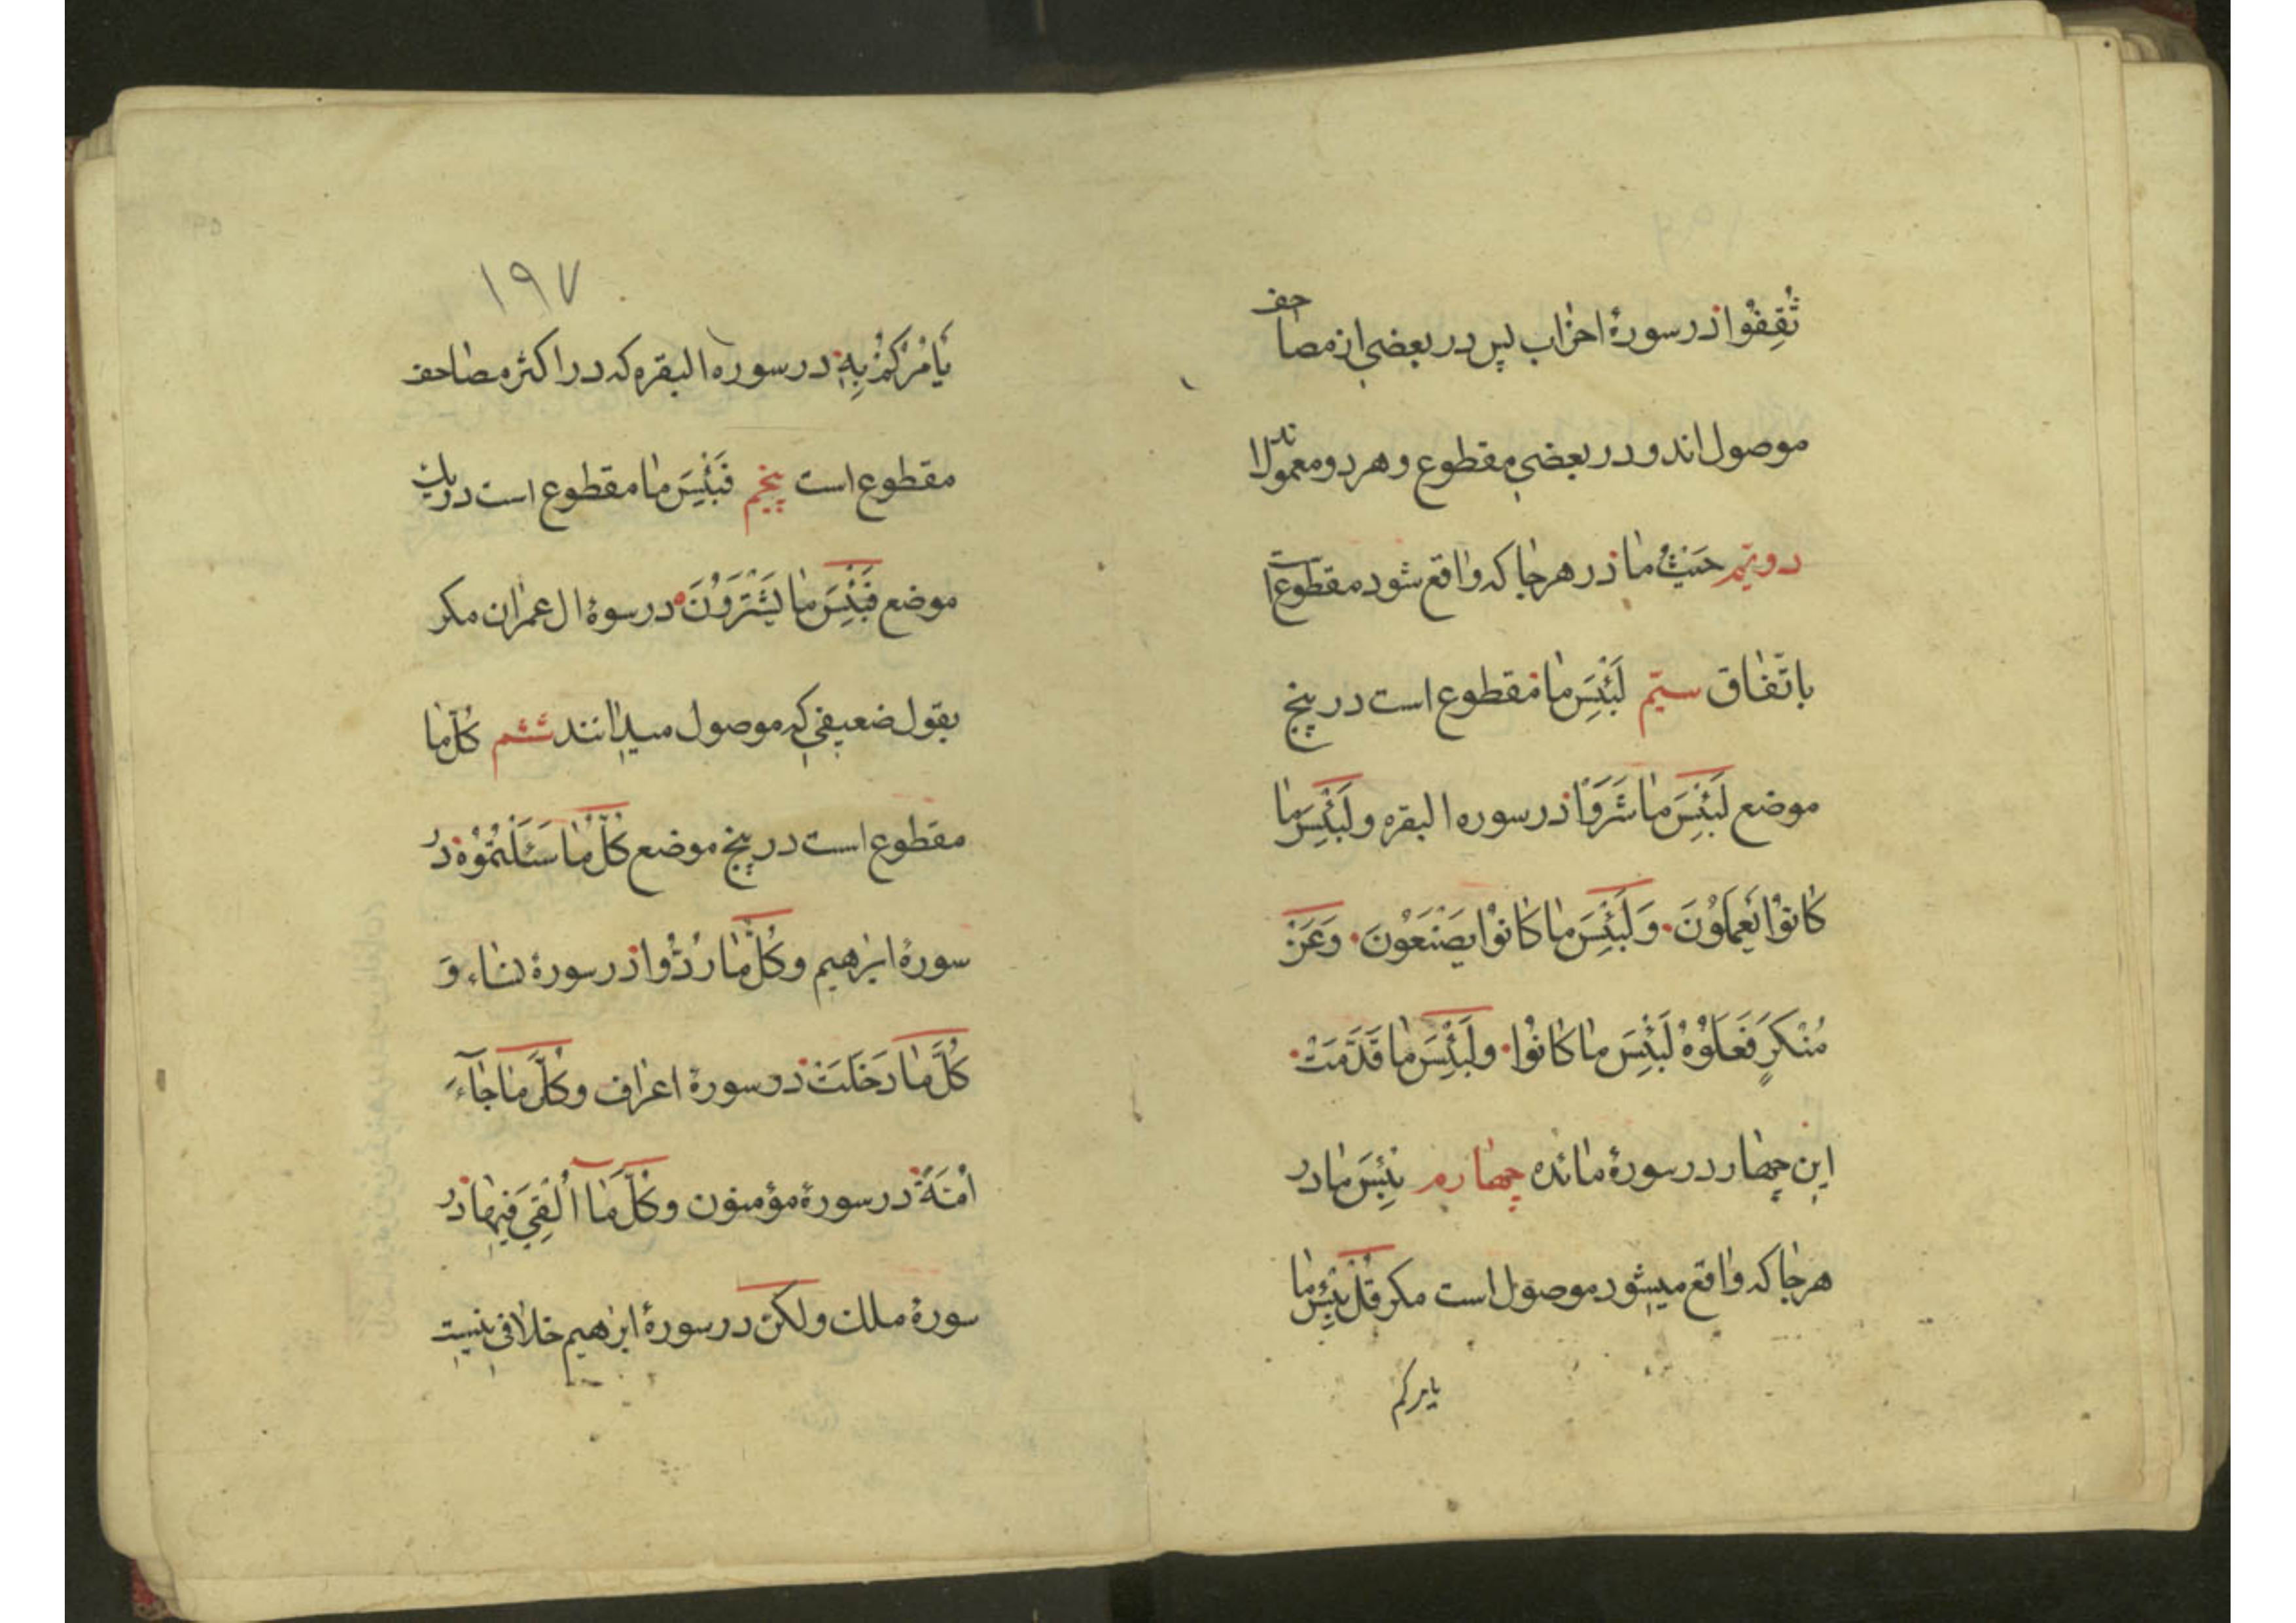 ثُقِفُوا در سورهٔ احزاب پس در بعضی از مصاحف
موصول اند و در بعضی مقطوع و هر دو معمولاند
دویّم حَیْثُ ما در هر جا که واقع شود مقطوع است
باتّفاق سیّم لَبِئْسَ ما مقطوع است در پنج
موضع لَبِئْسَ ما شَرَوْا در سوره البقره و لَبِئْسَ ما
کانُوْا یَعْمَلُوْنَ وَلَبِئْسَ ما کانُوْا یَصْنَعُوْنَ وَعَنْ
مُنْکَرٍ فَعَلُوْهُ لَبِئْسَ ما کانُوْا ولَبِئْسَ ما قَدَّمَتْ
این چهار در سورهٔ مائده چهارم بِئْسَ ما در
هر جا که واقع میشود موصول است مکر قُلْ بِئْسَ ما
یامرکم
۱۹۷
یَامُرُکُمْ بِهِ در سوره البقره که در اکثر مصاحف
مقطوع است پنجم فَبِئْسَ ما مقطوع است در یک
موضع فَبِئْسَ ما یَشْتَرَوُنَ در سوهٔ ال عمران مکر
بقول ضعیفی که موصول میدانند ششم کُلّ ما
مقطوع است در پنج موضع کُلّ ما سَئَلْتُمُوْهُ در
سورهٔ ابرهیم و کُلَّ ما رُدُّوا در سورهٔ نساء وَ
کُلَّ ما دَخَلَتْ در سورهٔ اعراف و کُلَّ ما جآءَ
اُمَّةً در سورهٔ مؤمنون و کُلَّ ما اُلْقِیَ فیها در
سورهٔ ملک و لکن در سورهٔ ابرهیم خلافی نیست